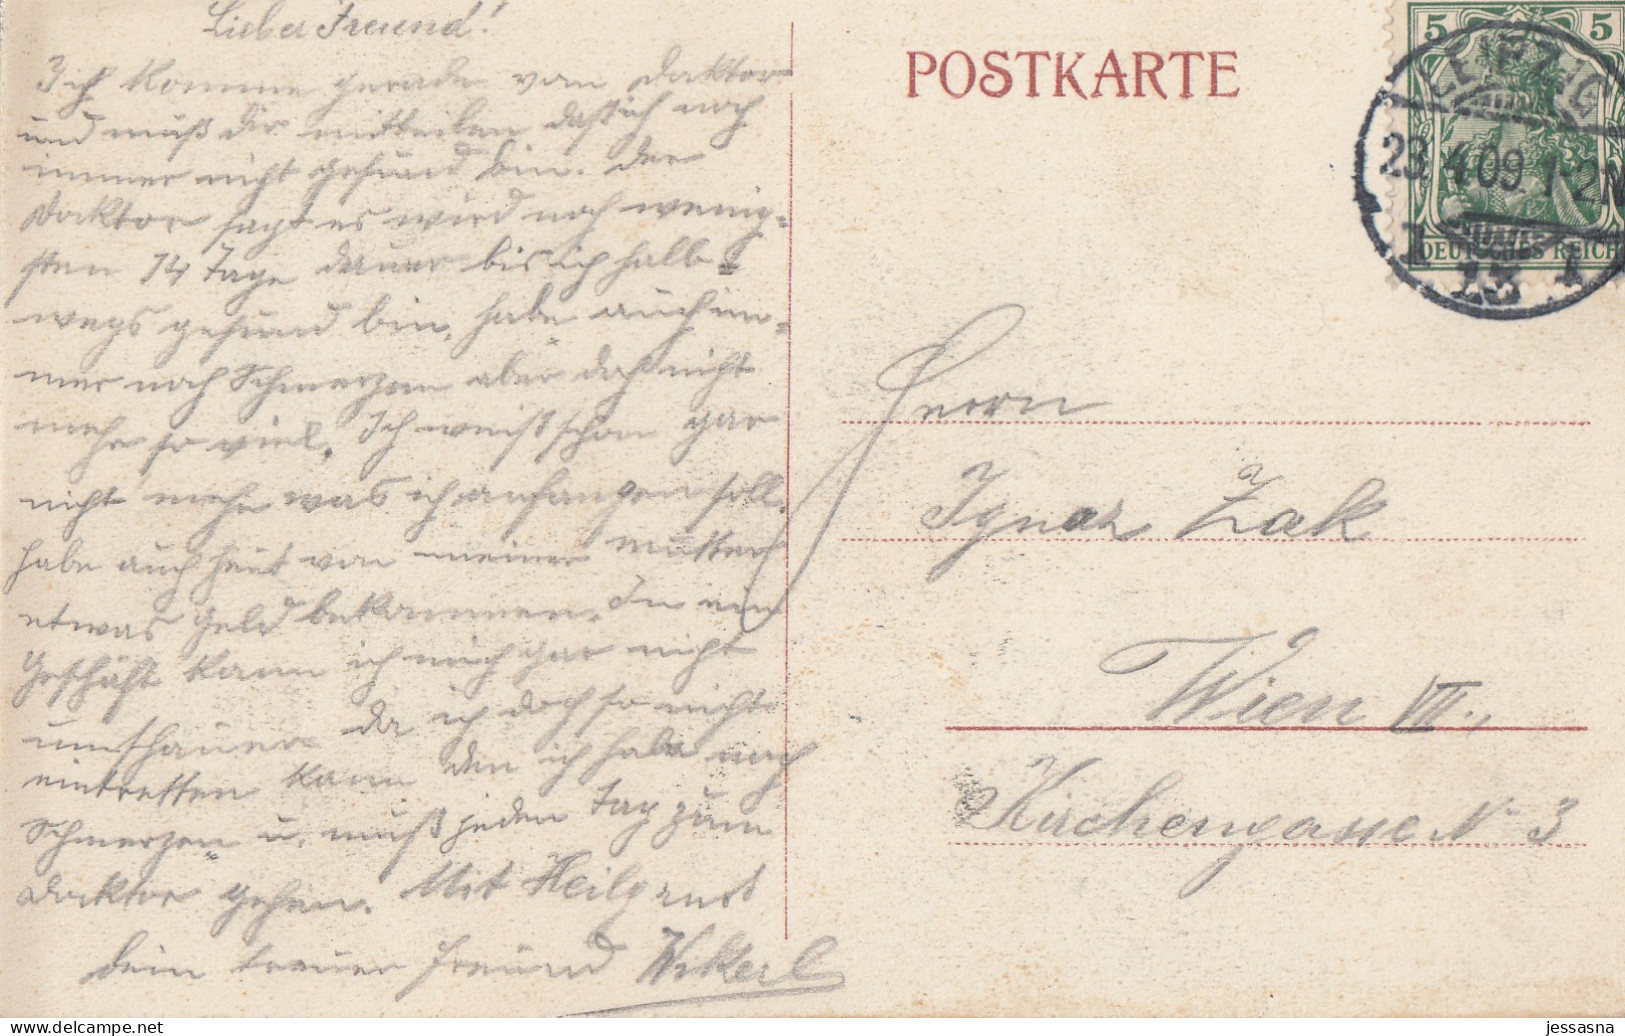 Lieber Freund!
Ich komme gerade vom Doktor
und muß dir mitteilen daß ich noch
immer nicht gesund bin. Der
Doktor sagt es wird noch wenig-
sten 14 Tage dauer bis ich halb-
wegs gesund bin, habe auch im-
mer noch Schmerzen aber doch nicht
mehr so viel. Ich weiß schon gar
nicht mehr was ich anfangen soll.
habe auch heut von meiner Mutter
etwas Geld bekommen. In ein
Geschäft kann ich mich gar nicht
umschauen da ich doch so nicht
eintretten kann den ich habe noch
Schmerzen u. muß jeden Tag zum
Doktor gehen. Mit Heilgruß
dein treuer Freund
POSTKARTE
5 5
LEIPZIG
23.4.09. 1-2N
13
DEUTSCHES REICH
Herrn
Ignaz Zak
Wien VII.,
Kirchengasse No 3
jessasna